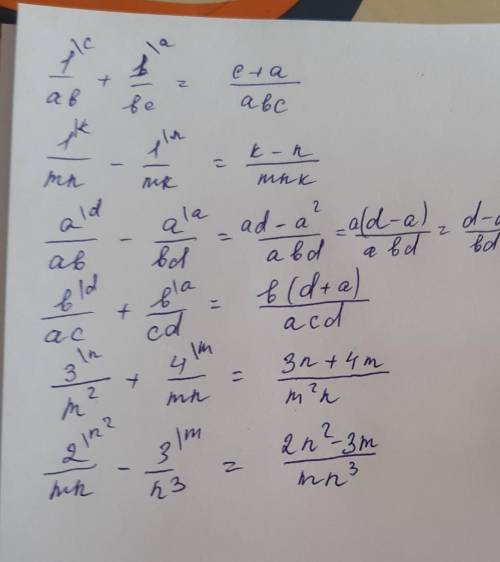 1\c/ab + 1\a/bc = c+a/abc
1\k/mn - 1\n/mk = k-n/mnk
a\d/ab - a\a/bd = ad-a²/abd = a(d-a)/abd = d-a/bd
b\d/ac + b\a/cd = b(d+a)/acd
3\n/m² + 4\m/mn = 3n+4m/m²n
2\n²/mn - 3\m/n³ = 2n²-3m/mn³